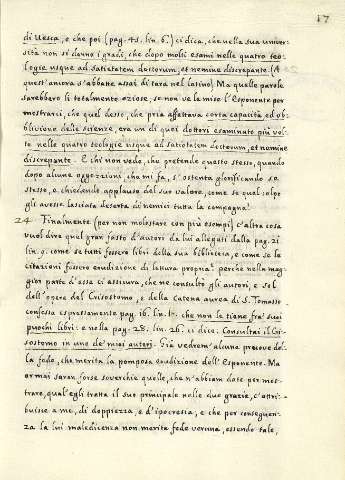 17
di Uesca, e che poi (pag. 45. lin. 6.) ci dica, che nella sua univer-
sità non si danno i gradi, che dopo molti esami nelle quatro teo-
logie usque ad satietatem doctorum, et nemine discrepante. (A
quest'ancora s'abbatte assai di rara nel latino) Ma quelle parole
sarebbero li totalmente oziose, se non ve le mise l'Esponente per
mostrarci, che quel desso, che pria affettava corta capacità ed ob-
blivione delle scienze, era un di quei dottori esaminato più vol-
te nelle quatro teologie usque ad satietatem doctorum, et nemine
discrepante. E chi non vede, che pretende questo stesso, quando
dopo alcune oggezzioni che mi fa, s'ostenta glorificando se
stesso, e chiedendo applauso del suo valore, come se quel colpo
gli avesse lasciata deserta di nemici tutta la campagna?
24. Finalmente (per non molestare con più esempj) c'altra cosa
vuol dire quel gran fasto d'autori da lui allegati dalla pag. 21
lin. 9. come se tutti fossero libri della sua biblioteca, e come se le
citazioni fossero erudizione di lettura propria? perchè nella mag-
gior parte d'essa ci assicura, che ne consultò gli autori, e sol
dell'opere del Crisostomo, e della Catena aurea di S. Tomasso
confessa espressamente pag. 16. lin. 1. che non la tiene fra' suoi
puochi libri: e nella pag. 28. lin. 26. ci dice: Consultai il Cri-
sostomo in une de' miei autori. Già vedrem' alcune pruove del-
la fede, che merita la pomposa erudizione dell'Esponente. Ma
or mai saran forse soverchie quelle, che n'abbiam date per mos-
trare, qual'egli tratta il suo principale nelle due grazie, c'attri-
buisce a me, di doppiezza, e d'ipocresia, e che per conseguen-
za la lui maledicenza non merita fede veruna, essendo tale,